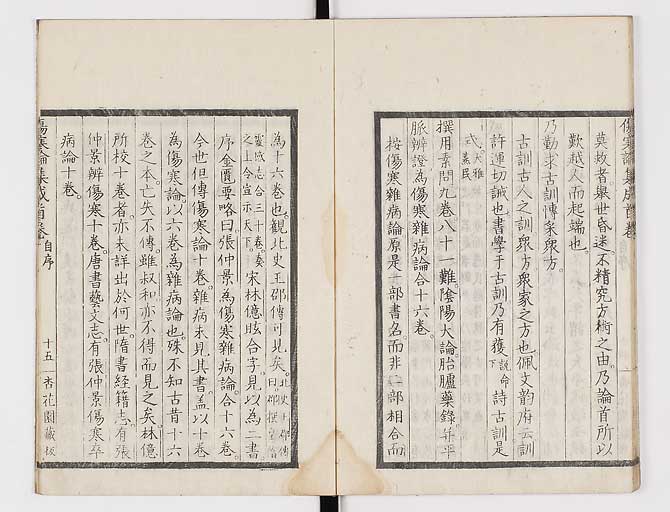 傷寒論集成首卷
莫救者舉世昏迷不精究方術之由乃論首所以
歎越人而起端也
乃勤求古訓博采衆方
古訓古人之訓衆方衆家之方也佩文韵府云訓
許運切誡也書學于古訓乃有獲說命下詩古訓是
式大雅烝民
撰用素問九卷八十一難陰陽大論胎臚藥錄并平
脈辨證爲傷寒雜病論合十六卷
按傷寒雜病論原是一部書名而非二部相合而
爲十六卷也觀北史王邵傳可見矣
靈感志合三十卷奏之上令宣示天下宋林億眩合字見以爲二書
序金匱要略曰張仲景爲傷寒雜病論合十六卷
今世但傳傷寒論十卷雜病未見其書蓋以十卷
爲傷寒論以六卷爲雜病論也殊不知古昔十六
卷之本亡失不傳雖叔和亦不得而見之矣林億
所校十卷者亦未詳出於何世隋書經籍志有張
仲景辨傷寒十卷唐書藝文志有張仲景傷寒卒
病論十卷
傷寒論集成首卷 自序 十五 杏花園藏板